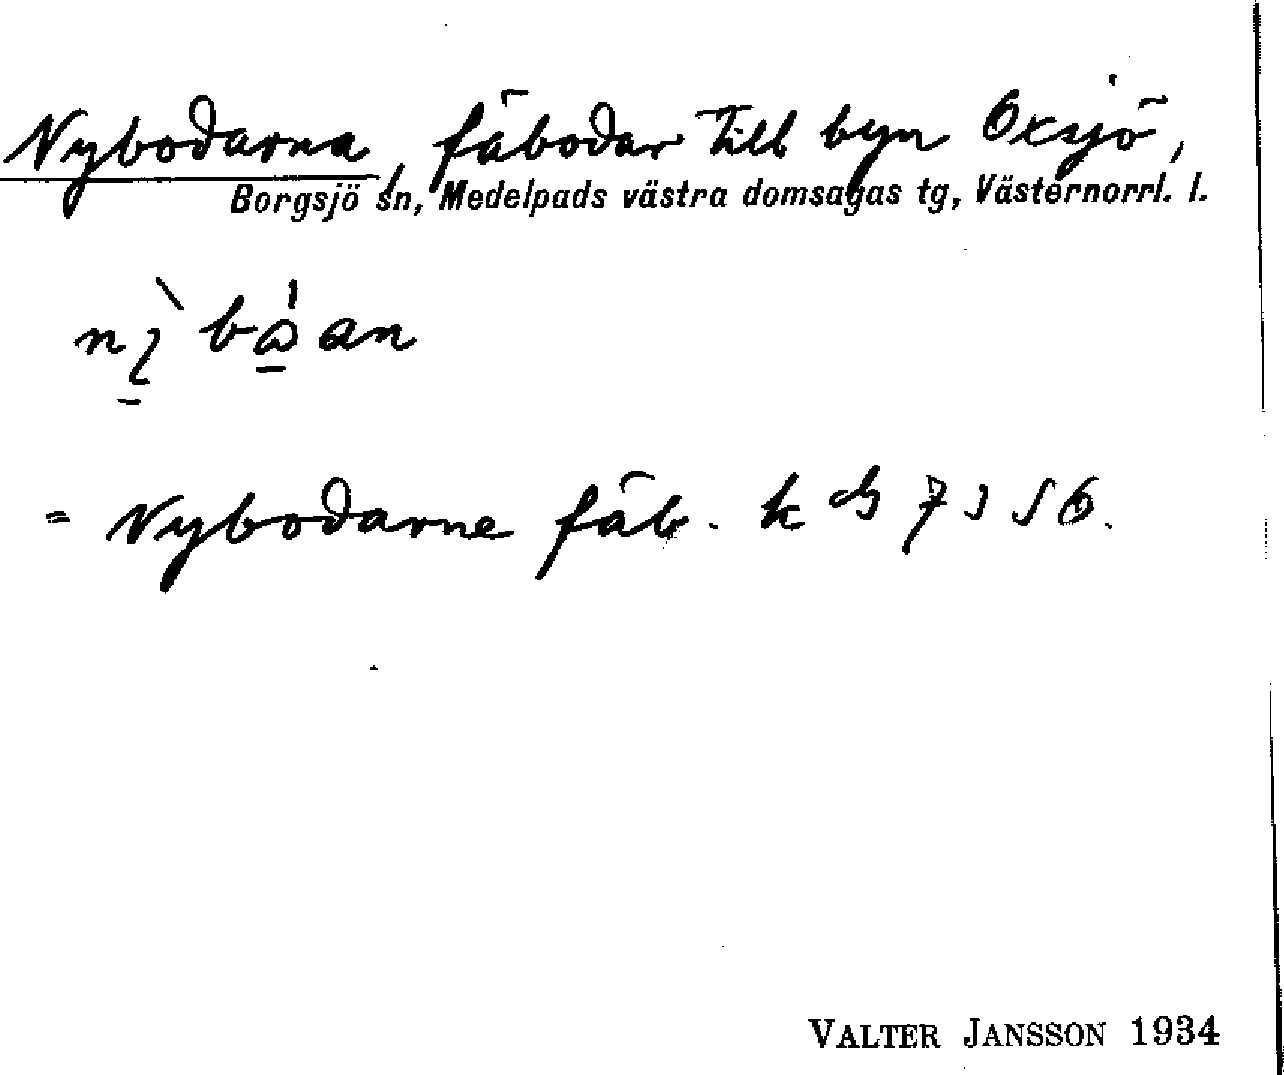 Nybodarna, fäbodar till byn Oxsjö,
Borgsjö sn, Medelpads västra domsagas tg, Västernorrl. l.
= Nybodarne fäb.
VALTER JANSSON 1934